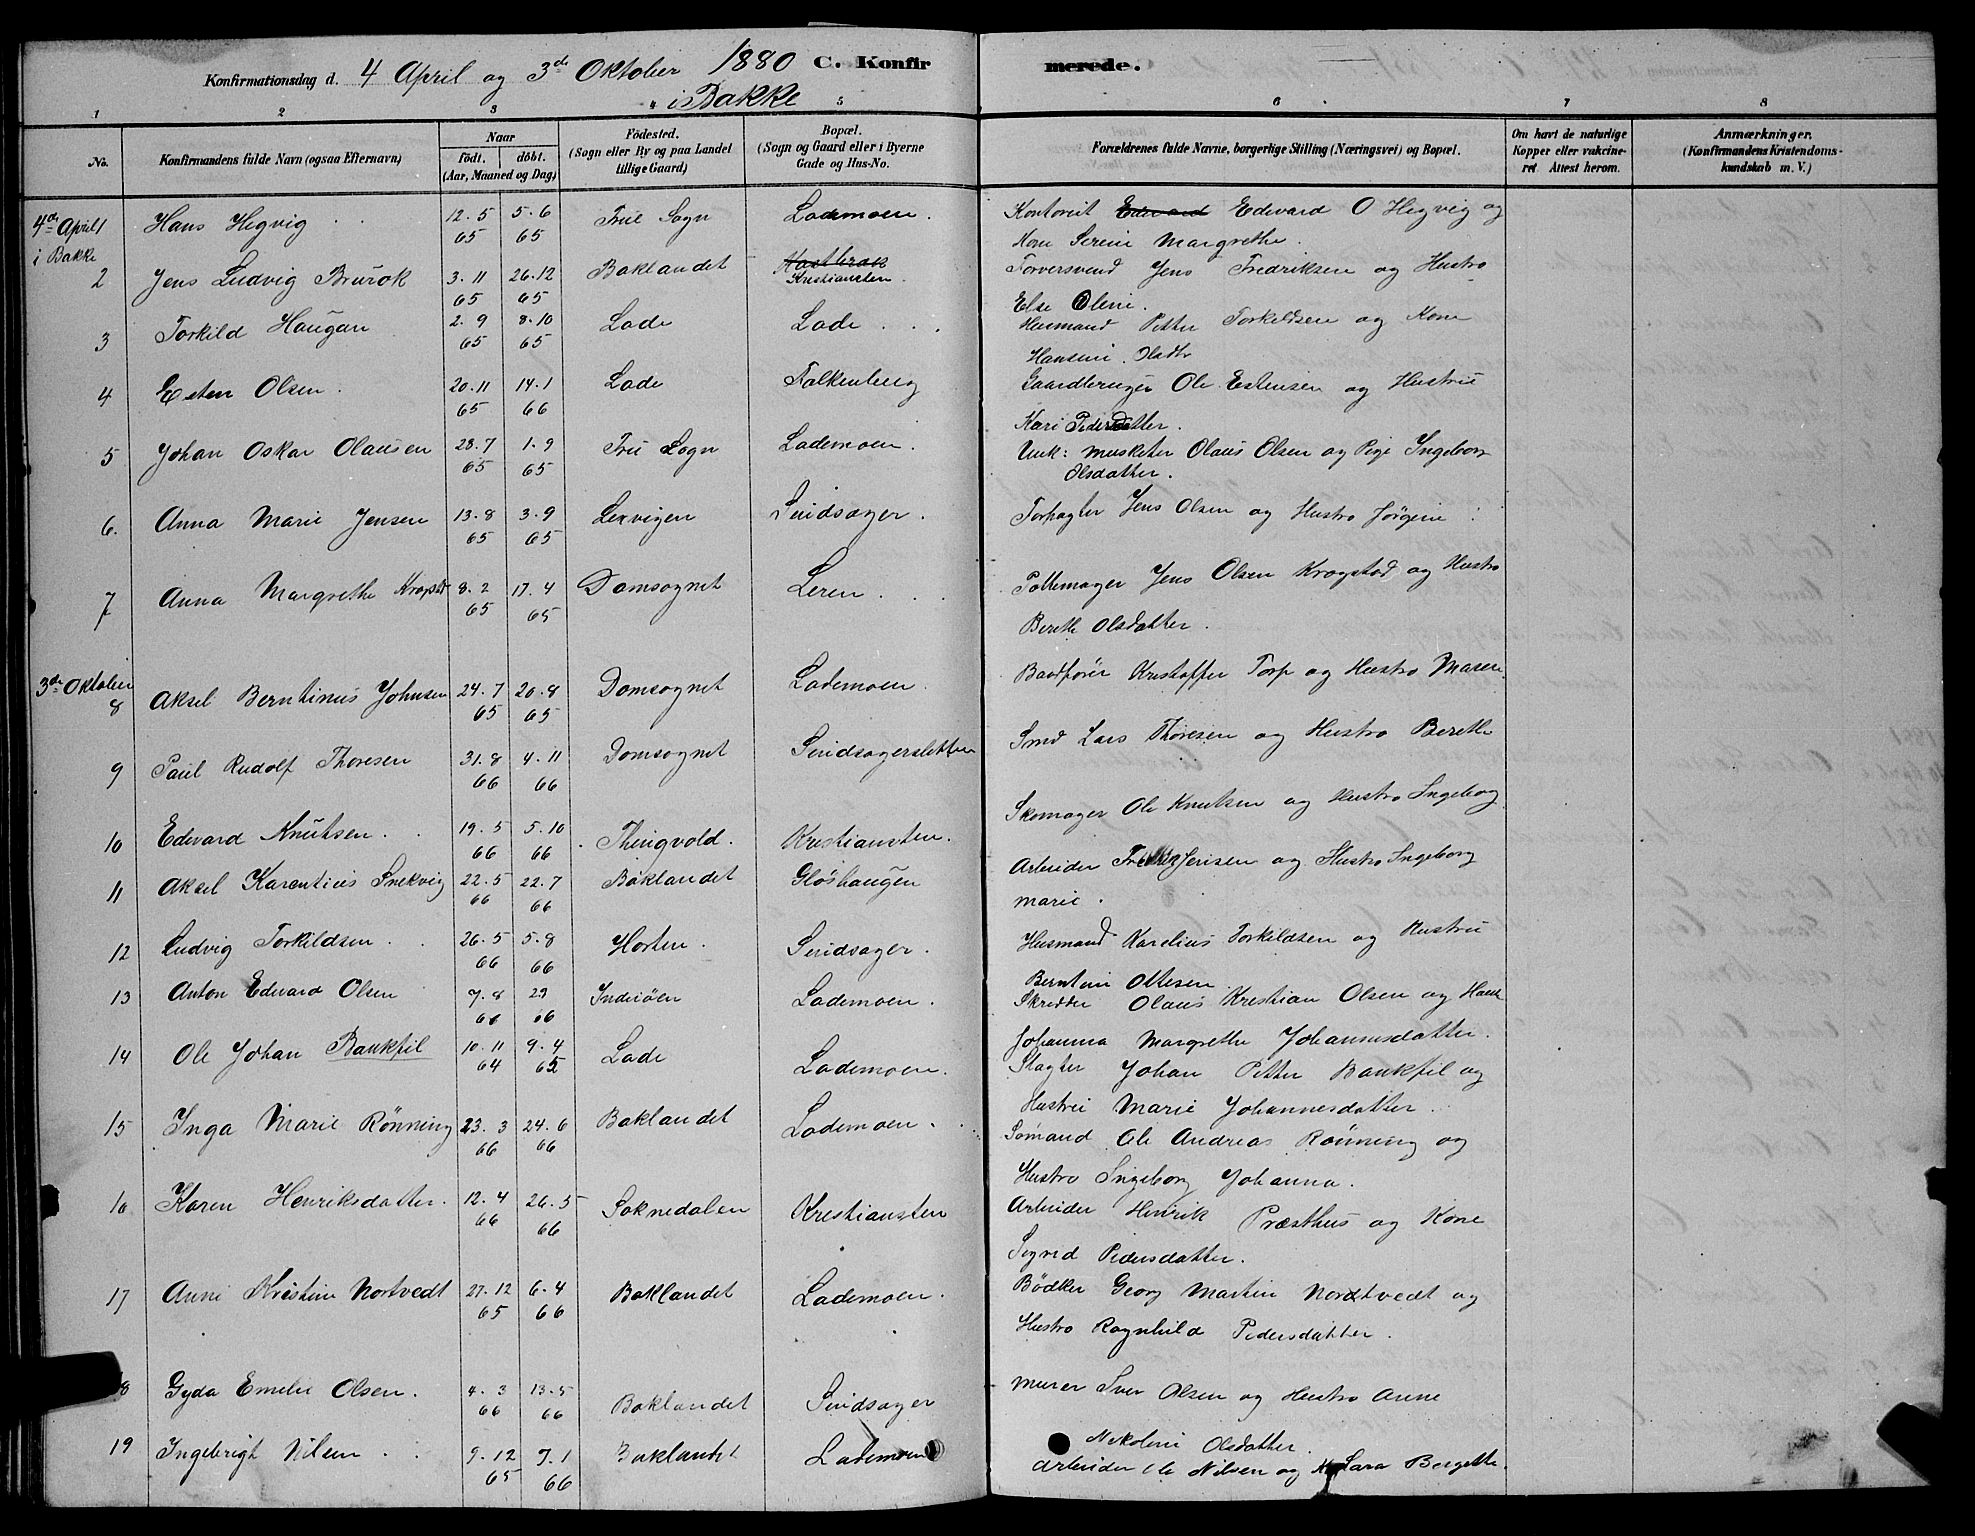 Konfirmationsdag d. 4 April og 3de Oktober 1880 C. Konfirmerede.
i Bakke
1 2 3 5 6 7 8
No. Konfirmandens fulde Navn (ogsaa Efternavn) Naar födt. döbt. (Aar, Maaned og Dag) Födested. (Sogn eller By og paa Landet tillige Gaard) Bopæl. (Sogn og Gaard eller i Byerne Gade og Hus-No. Forældrenes fulde Navne, borgerlige Stilling (Næringsvei) og Bopæl. Om havt de naturlige Kopper eller vakcineret Attest herom. Anmærkninger. (Konfirmandens Kristendomskundskab m. V.)
4de April i Bakke
1 Hans Hegvig 12.5 65 5.6 65 Frue Sogn Lademoen. Kontorist Edvard Edevard O Hegvig og
Kone Serine Margrethe.
2 Jens Ludvig Brurok 3.11 65 26.12 65 Baklandet Kristiansten Jens Fredriksen og Hustro
Else Oline.
3 Torkild Haugan 2.9 65 8.10 65 Lade Lade Husmand Petter Torkildsen og Kone
Hansine Olsdtr
4 Esten Olsen. 20.11 65 14.1 66 Lade Falkenberg Gaardbruger Ole Estensen og Hustru
Kari Pedersdatter.
5 Johan Oskar Olausen 28.7 65 1.9 65 Frue Sogn Lademoen. Unk: Musketer Olaus Olsen og Pige Ingeborg
Olsdatter.
6. Anna Marie Jensen 13.8 65 3.9 65 Lexvigen Lindsager. Jens Olsen og Hustro Jørgine
7 Anna Margrethe Kragstad 8.2 65 17.4 65 Domsognet Leren Pottemager Jens Olsen Kragstad og Hustro
Berethe Olsdatter.
3de Oktober
8 Aksel Berntinus Johnsen 24.7 65 20.8 65 Domsognet Lademoen. Kristoffer Torp og Hustro Maren
9 Paul Rudolf Thoresen 31.8 66 4.11 66 Domsognet Smed Lars Thoresen og Hustro Berethe
10 Edvard Knutsen. 19.5 66 5.10 66 Thingvold. Kristiansten. Skomager Ole Knutsen og Hustro Ingeborg
11 Aksel Karentius Snekvig 22.5 66 22.7 66 Baklandet Gløshaugen Arbeider Jensen og Hustro Ingeborg
Marie.
12 Ludvig Torkildsen 26.5 66 5.8 66 Horten. Lindsager. Husmand Karelius Torkildsen og Hustru
Berntine Ottesen
13 Anton Edvard Olsen 7.8 66 29 66 Inderöen Lademoen. Skredder Olaus Kristian Olsen og
Johanna Margrethe Johannesdatter.
14 Ole Johan Baukfil 10.11 64 9.4 65 Lade Lademoen. Slagter Johan Petter Baukfil og
Hustru Marie Johannesdatter.
15 Inga Marie Rönning 23.3 66 24.6 66 Baklandet Lademoen. Sömand Ole Andreas Rönning og
Hustro Ingeborg Johanna.
16 Karen Henriksdatter. 12.4 66 26.5 66 Soknedalen Kristiansten Arbeider Henrik Præsthus og Kone
Sigrid Pedersdatter.
17 Anne Kristine Nortvedt 27.12 65 6.4 66 Baklandet Lademoen. Bödker Georg Martin Nordtvedt og
Hustro Ragnhild Pedersdatter.
18 Gyda Emelie Olsen. 4.3 66 13.5 66 Baklandet Lindsager Murer Iver Olsen og Hustro Anne
Nikoline Olsdatter.
19 Ingebrigt Nilsen 9.12 65 7.1 66 Baklandet Lademoen Arbeider Ole Nilsen og Sara Bergette.